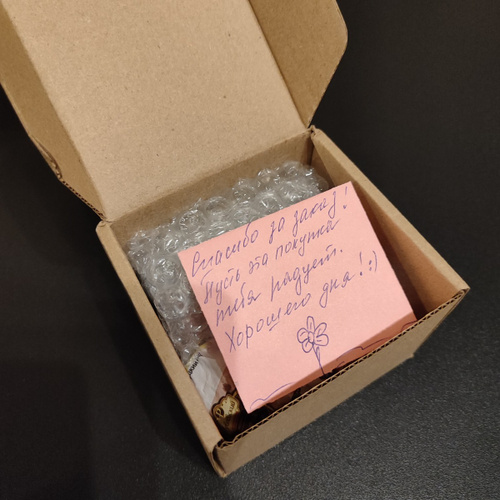 Спасибо за заказ!
Пусть эта покупка
тебя радует.
Хорошего дня! :)